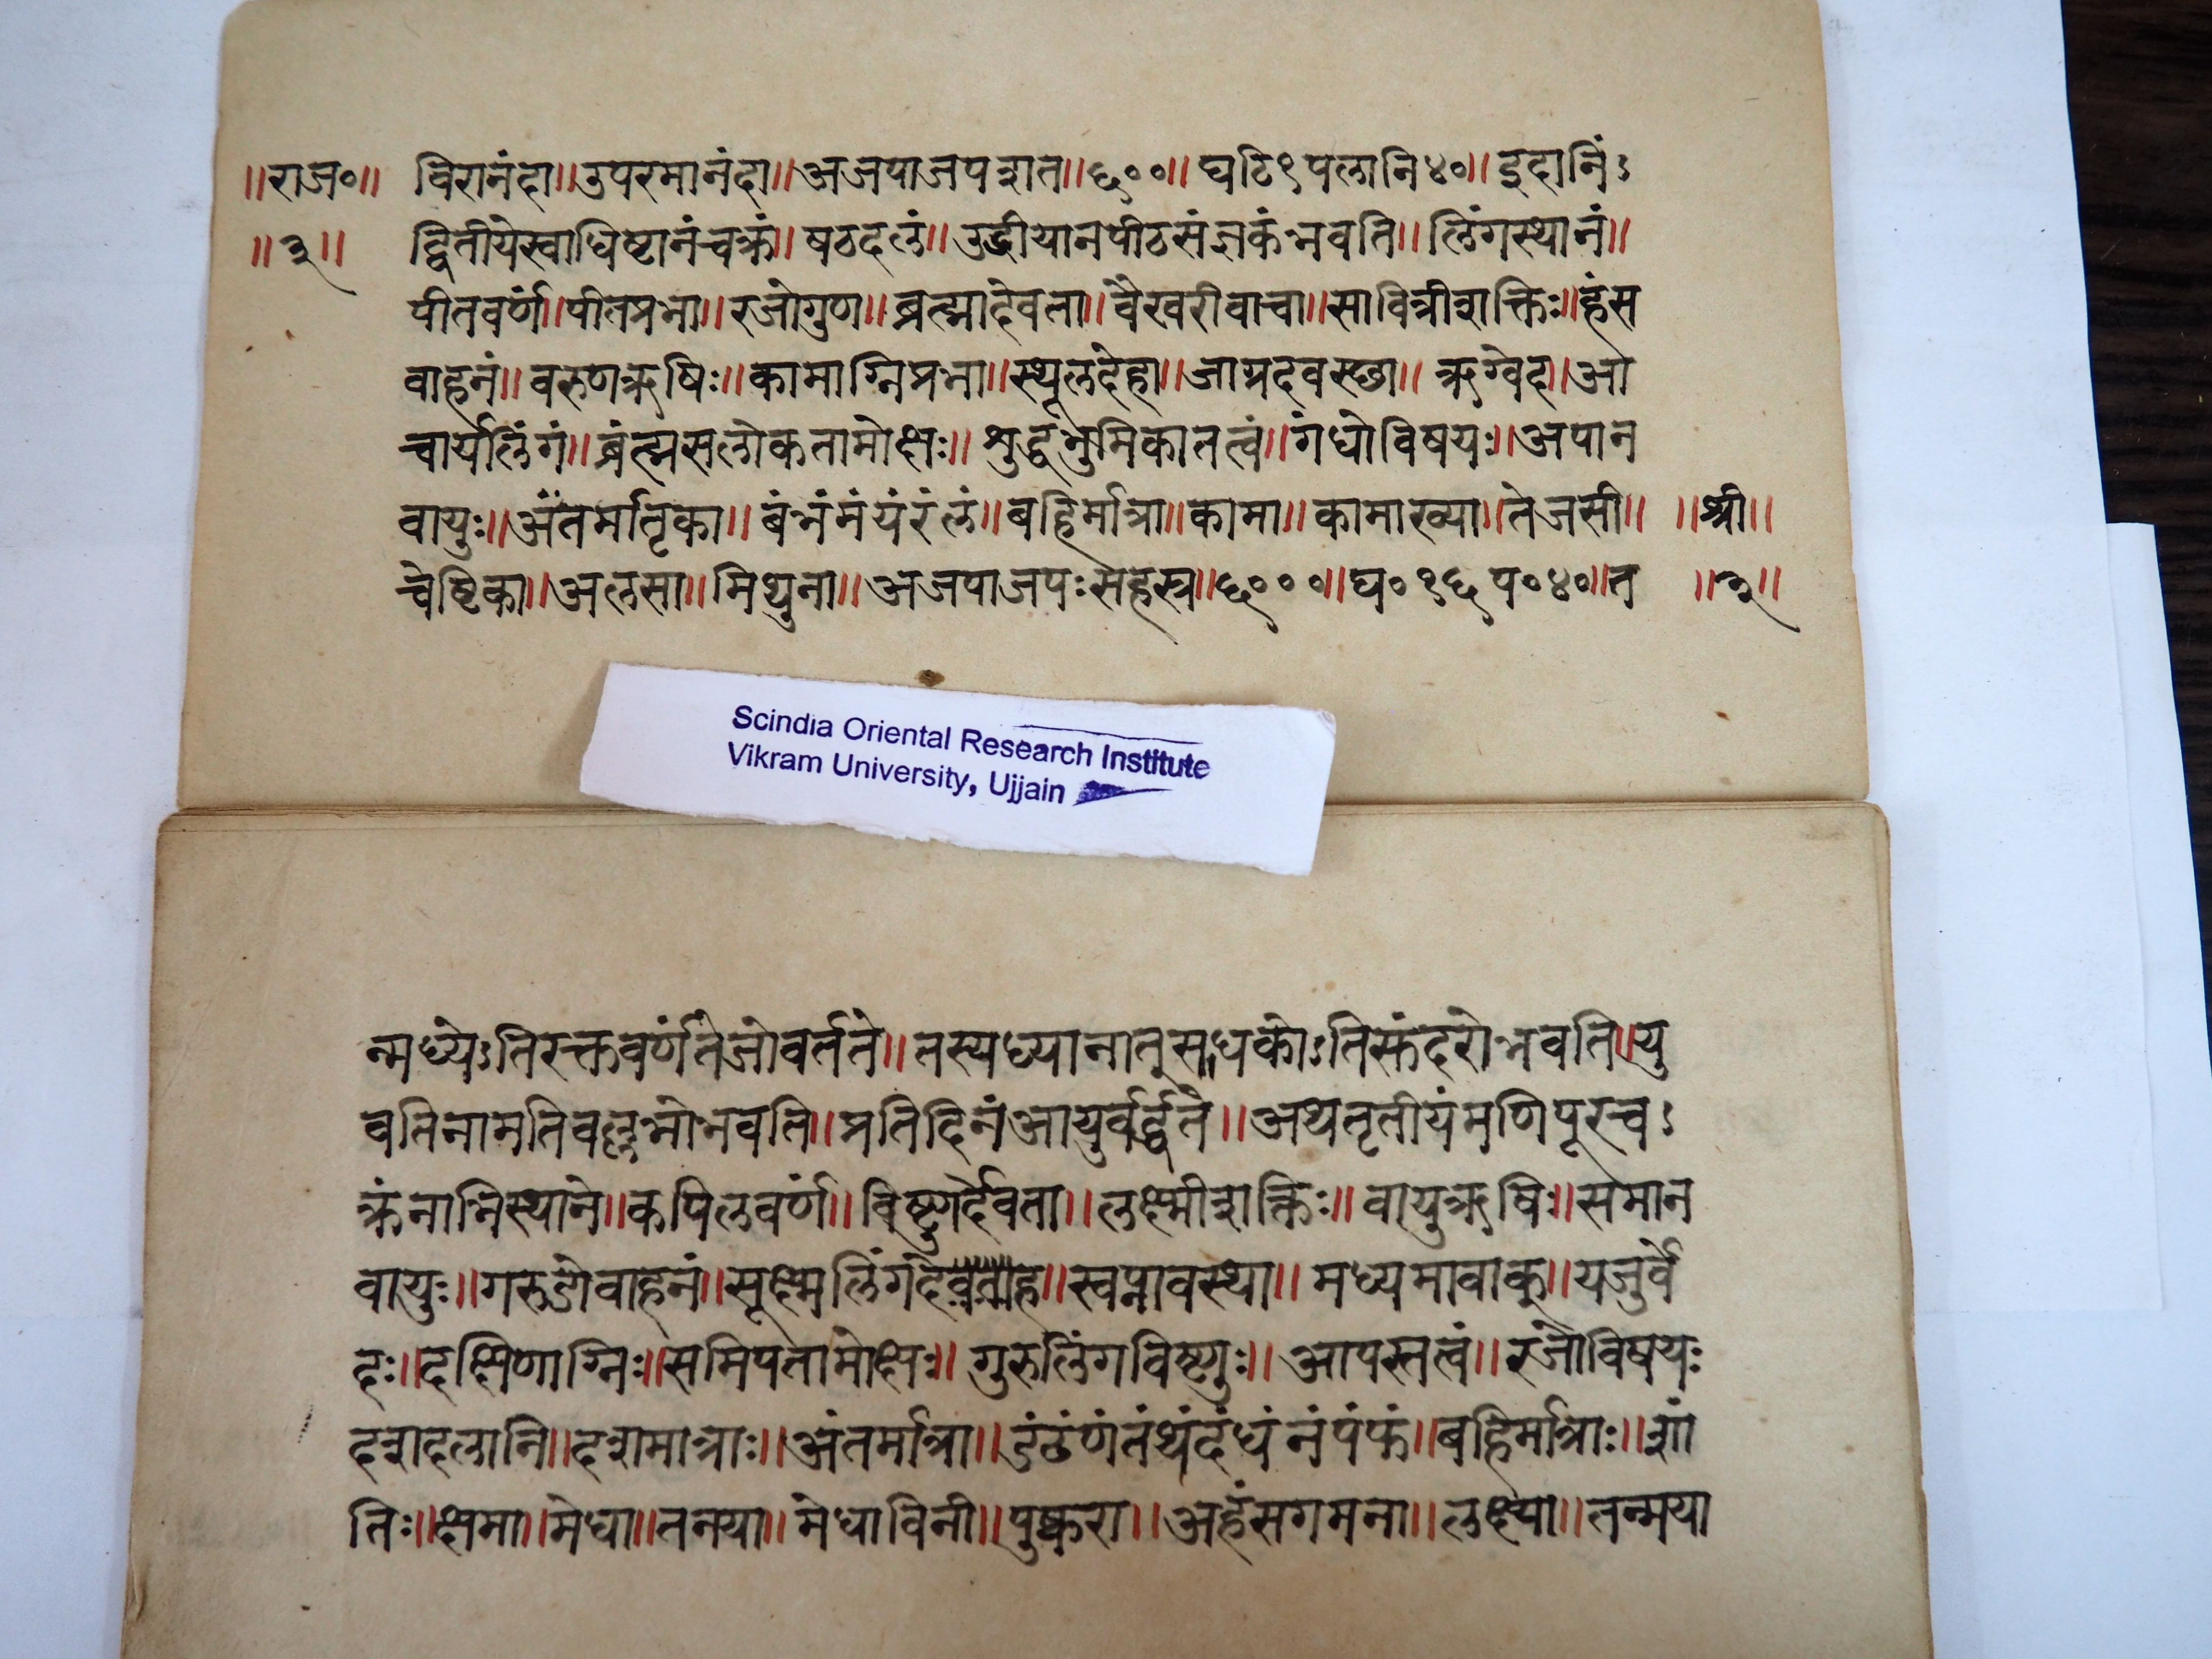 ॥राज०॥ विरानंदा॥उपरमानंदा॥अजपाजपशत॥६००॥ घटि१पलानि४०॥ इदानिंऽ
॥३॥ द्वितीयेस्वाधिष्टानंचक्रं॥ षठदलं॥ उड्डीयानपीठसंज्ञकंभवति॥ लिंगस्थानं॥
पीतवर्णं॥पीतप्रभा॥ रजोगुण॥ ब्रह्मादेवता॥ वैखरीवाचा॥सावित्रीशक्तिः॥हंस
वाहनं॥ वरुणऋषिः॥ कामाग्निप्रभा॥स्थूलदेहा॥ जाग्रदवस्छा॥ ऋग्वेद॥आ
चार्यलिंगं॥ ब्रंह्मसलोकतामोक्षः॥ श्रुद्धभुमिकातत्वं॥गंधोविषयः॥अपान
वायुः॥अंतर्मातृका॥ बंभंमंयंरंलं॥बहिर्मात्रा॥कामा॥ कामाख्या॥तेजसी॥ ॥श्री॥
चेष्टिका॥अलसा॥ मिथुना॥ अजपाजपःसहस्त्र॥६०००॥घ०१६प०४०॥त ॥३॥
Scindia Oriental Research Institute
Vikram University, Ujjain
न्मध्येऽतिरक्तवर्णंतेजोवर्तते॥ तस्यध्यानात्साधकोऽतिसुंदरोभवति॥यु
वतिनामतिवल्लभोभवति॥ प्रतिदिनंआयुर्वर्द्धते॥ अथतृतीयंमणिपूरचऽ
क्रंनाभिस्थाने॥कपिलवर्णं॥ विष्णुर्देवता॥ लक्ष्मीशक्तिः॥ वायुऋषिः॥समान
वायुः॥गरुडोवाहनं॥सूक्ष्मलिंगंदेह॥स्वप्नावस्था॥ मध्यमावाक्॥यजुर्वे
दः॥दक्षिणाग्निः॥समिपतामोक्षः॥ गुरुलिंगविष्णुः॥ आपस्तत्वं॥ रजोविषयः
दशदलानि॥दशमात्राः॥अंतर्मात्रा॥ डंढंणंतंथंदंधंनंपंफं॥बहिर्मात्राः॥शां
तिः॥क्षमा॥मेधा॥तनया॥ मेधाविनी॥पुष्करा॥ अहंसगमना॥ लक्ष्या॥ तन्मया